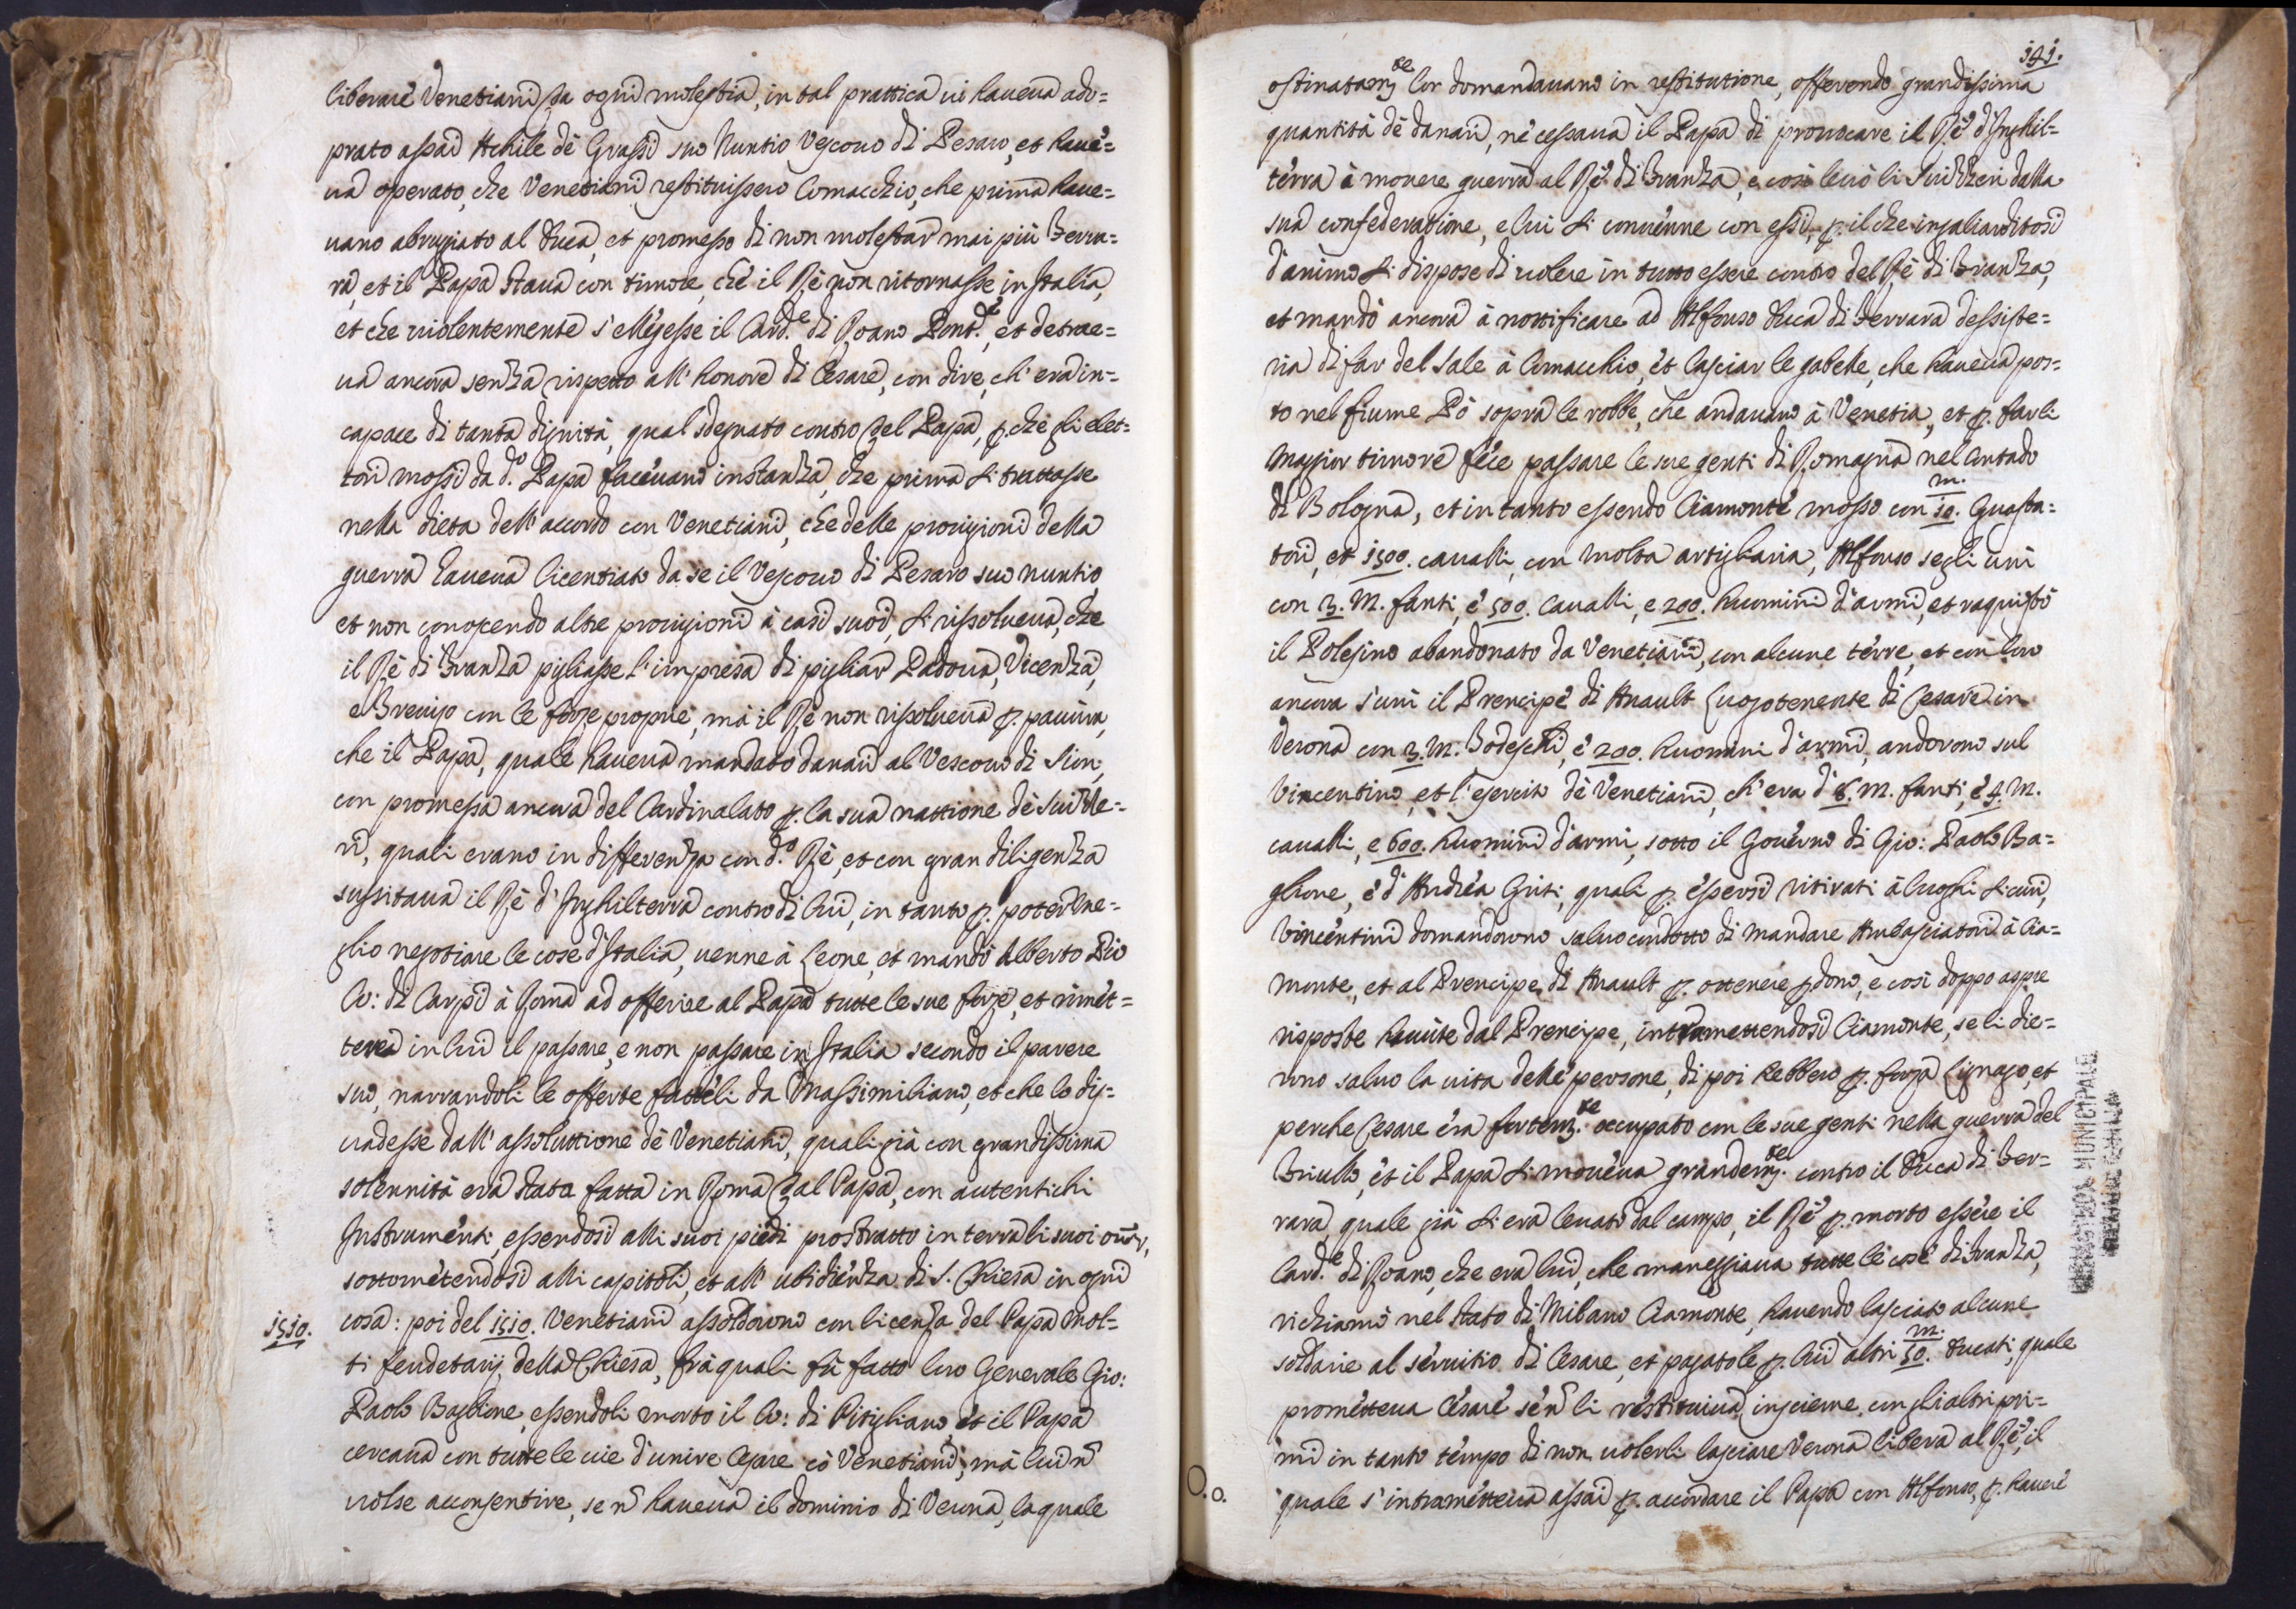 liberare Venetiani da ogni molestia, in tal prattica ui haueua ado=
prato assai Achile de Grassi suo Nuntio Vescouo di Pesaro, et haue=
ua operato, che Venetiani restituissero Comacchio, che prima haue=
uano abrugiato al Duca, et promesso di non molestar mai più Ferra=
ra, et il Papa staua con timore, che il Rè non ritornasse in Italia,
et che uiolentemente s'ellegesse il Card.e di Roano Pont.ce, et detrae=
ua ancora senza rispetto all'honore di Cesare, con dire, ch'era in=
capace di tanta dignità, qual sdegnato contro del Papa, p. che gli elet=
tori mossi da d.o Papa faceuano instanza, che prima si trattasse
nella dieta dell'accordo con Venetiani, che delle prouigioni della
guerra haueua licentiato da se il Vescouo di Pesaro suo nuntio,
et non conoscendo altre prouigioni à casi suoi, si rissolueua, che
il Rè di Franza pigliasse l'impresa di pigliar Padoua, Vicenza,
e Treuigo con le forze proprie, mà il Rè non rissolueua p. paura,
che il Papa, quale haueua mandato danari al Vescouo di Sion,
con promessa ancora del Cardinalato p. la sua nattione de Suizze=
ri, quali erano in differenza con d.o Rè, et con gran diligenza
sussitaua il Rè d'Inghilterra contro di lui, in tanto p. poter me=
glio negotiare le cose d'Italia, uenne à Leone, et mandò Alberto Pio
Co: di Carpi à Roma ad offerire al Papa tutte le sue forze, et rimet=
tere in lui il passare, e non passare in Italia secondo il parere
suo, narrandoli le offerte fatteli da Massimiliano, et che lo dis=
uadesse dall'assoluttione de Venetiani, quali già con grandissima
solennità era stata fatta in Roma dal Papa, con autentichi
Instrumenti, essendosi alli suoi piedi prostratto in terra li suoi
sottometendosi alli capitoli, et all'ubidienza di S. Chiesa in ogni
1510. cosa: poi del 1510. Venetiani assoldorno con licenza del Papa mol=
ti feudetarij della Chiesa, frà quali fù fatto loro Generale Gio:
Paolo Baglione, essendoli morto il Co: di Pitigliano, et il Papa
cercaua con tutte le uie d'unire Cesare cò Venetiani, mà lui nõ
uolse acconsentire, se nõ haueua il dominio di Verona, la quale
141.
ostinatam.te lor domandauano in restitutione, offerendo grandissima
quantità de danari, ne cessaua il Papa di prouocare il Rè d'Inghil=
terra à mouere guerra al Rè di Franza, e così leuò li Suizzeri dalla
sua confederatione, e lui si conuenne con essi, p. il che ingaliarditosi
d'animo si dispose di uolere in tutto essere contro del Rè di Franza,
et mandò ancora à nottificare ad Alfonso Duca di Ferrara dessiste=
ria di far del sale à Comacchio, et lasciar le gabelle, che haueua pos=
to nel fiume Pò sopra le robbe, che andauano à Venetia, et p. farli
maggior timore fece passare le sue genti di Romagna nel Contado
di Bologna, et in tanto essendo Ciamonte mosso con 10.m. Guasta=
tori, et 1500. caualli, con molta artigliaria, Alfonso segli unì
con 3. M. fanti, e 500. caualli, e 200. huomini d'armi, et raquistò
il Polesino abandonato da Venetiani, con alcune terre, et con loro
ancora s'unì il Prencipe di Anault Luogotenente di Cesare in
Verona con 3. M. Todeschi, e 200. huomini d'armi, andorono sul
Vincentino, et l'esercito de Venetiani, ch'era d'8. M. fanti, e 4. M.
caualli, e 600. huomini d'armi, sotto il Gouerno di Gio: Paolo Ba=
glione, e d'Andrea Griti, quali p. essersi ritirati à luoghi sicuri,
Vincentini domandorono saluocondotto di mandare Ambasciatori à Cia=
monte, et al Prencipe di Anault p. ottenere pdono, e così doppo aspre
risposte hauute dal Prencipe, intramettendosi Ciamonte, se li die=
rono saluo la uita delle persone, di poi hebbero p. forza Lignago, et
perche Cesare era fortem.te occupato con le sue genti nella guerra del
Friullo, et il Papa si moueua grandem.te contro il Duca di Fer=
rara, quale già si era leuato dal campo, il Rè p. morto essere il
Card.e di Roano, che era lui, che maneggiaua tutte le cose di Franza,
richiamò nel stato di Milano Ciamonte, hauendo lasciato alcune
soldarie al seruitio di Cesare, et pagatole p. lui altri 50.m. Ducati, quale
prometteua Cesare se nõ li restituiua insieme con gli altri pri=
mi in tanto tempo di non uolerli lasciare Verona libera al Rè, il
quale s'intrametteua assai p. accordare il Papa con Alfonso, p. hauere
O.o.
MUNICIPALE